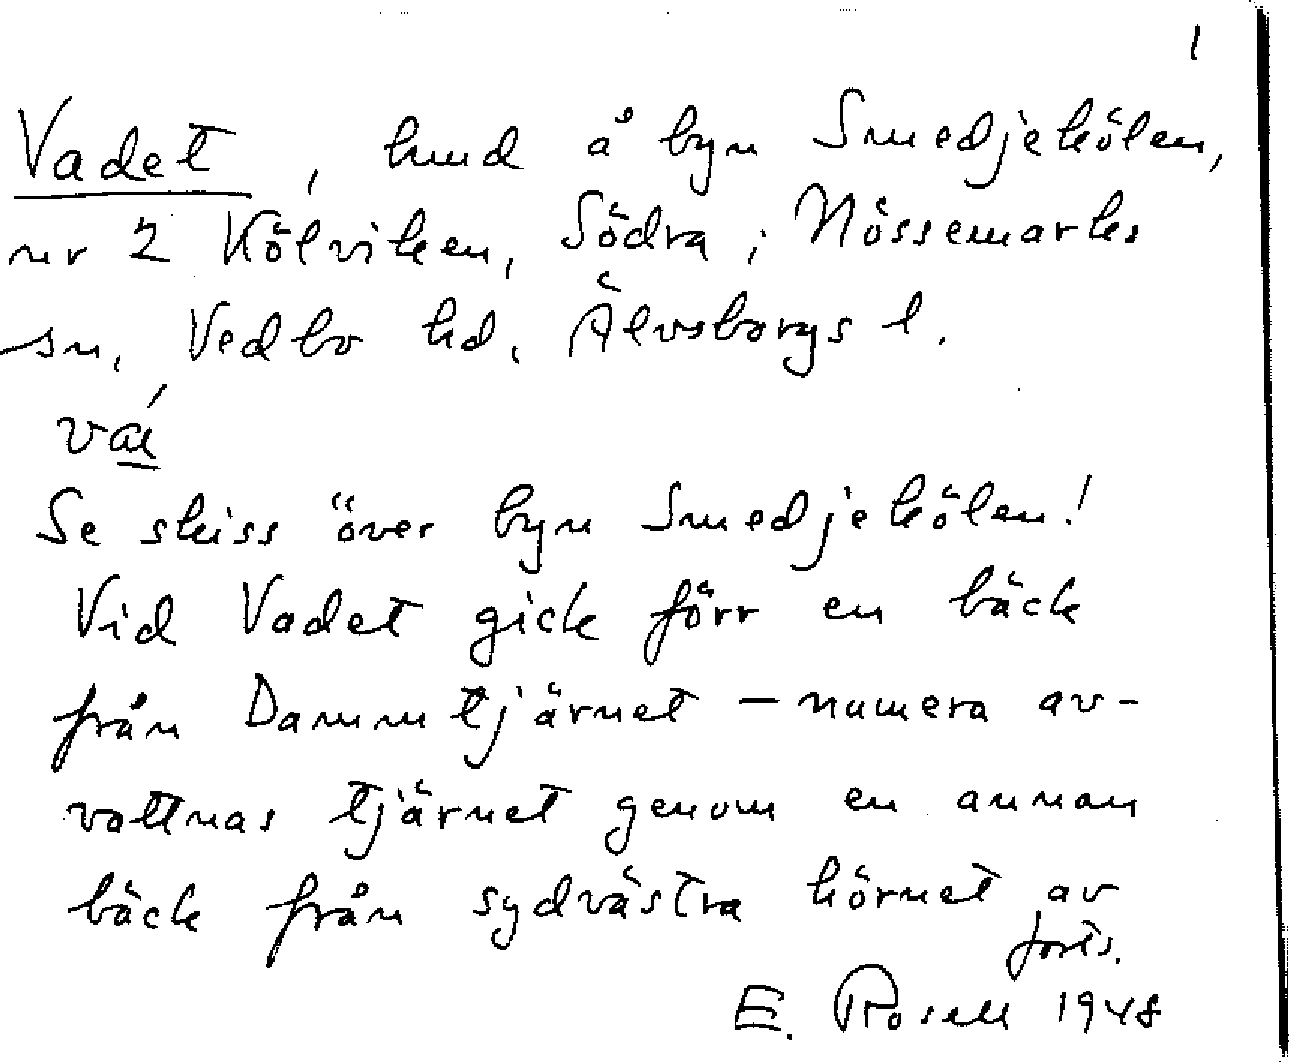 1
Vadet, hmd å byn Smedjekölen,
nr 2 Kölviken, Södra, i Nössemarks
sn, Vedbo hd, Älvsborgs l.
Se skiss över byn Smedjekölen!
Vid Vadet gick förr en bäck
från Dammtjärnet – numera av-
vattnas tjärnet genom en annan
bäck från sydvästra hörnet av
forts.
E. Rosell 1948